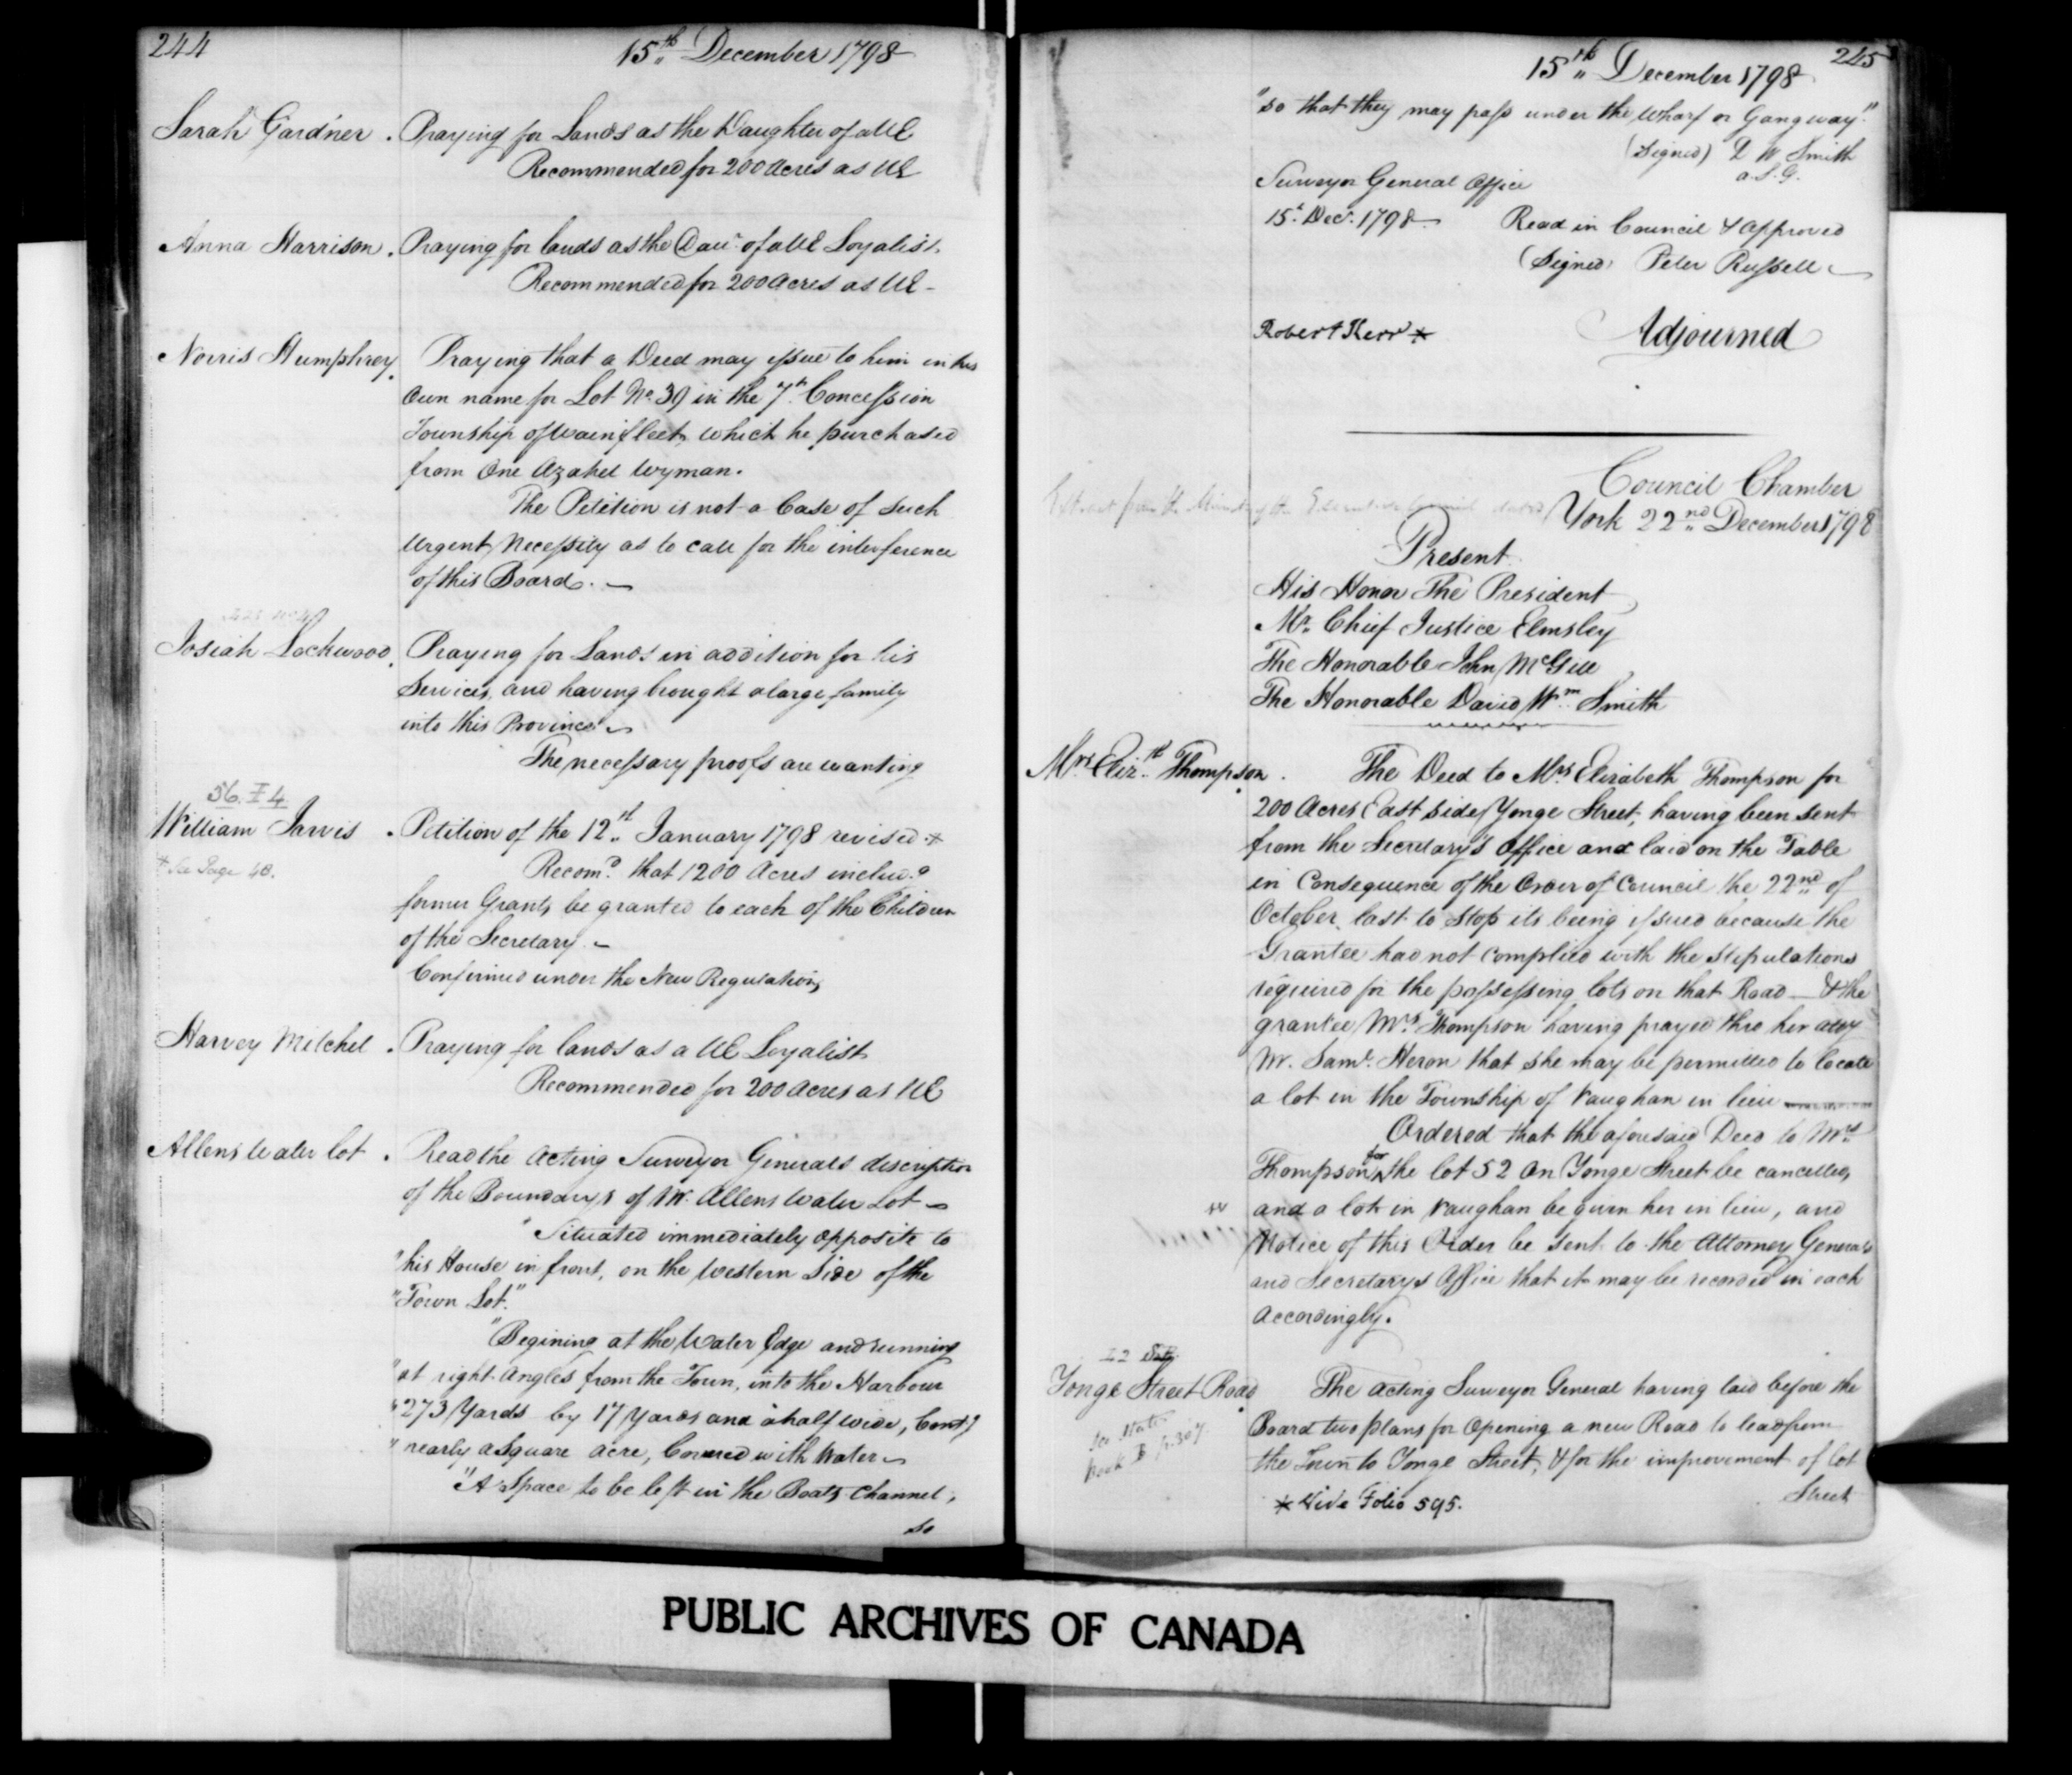 244
15th December 1798
Sarah Gardner . Praying for Lands as the Daughter of a UE
Recommended for 200 Acres as UE
Anna Harrison . Praying for lands as the Daur of a UE Loyalist.
Recommended for 200 Acres as UE -
Norris Humphrey . Praying that a Deed may issue to him in his
Own name for Lot No. 39 in the 7th Concession
Township of Wainfleet, which he purchased
from One Azahel Wyman.
The Petition is not a Case of such
Urgent Necessity as to call for the interference
of this Board. —
Josiah Lockwood . Praying for Lands in addition for his
Services, and having brought a large family
into this Province
The necessary proofs are wanting
36. I 4
William Jarvis . Petition of the 12th January 1798 revised *
* See Page 40.
Recomd that 1200 Acres includg
former Grants be granted to each of the Children
of the Secretary. —
Confirmed under the New Regulations
Harvey Mitchel . Praying for lands as a UE Loyalist
Recommended for 200 Acres as UE
Allens Water lot . Read the Acting Surveyor Generals discription
of the Boundarys of Mr. Allens Water Lot —
" Situated immediately opposite to
"his House in front, on the Western Side of the
"Town Lot."
"Begining at the Water Edge and running
"at right Angles from the Town, into the Harbour
"273 Yards by 17 Yards and a half wide, Contg
"nearly a Square acre, Covered with Water
"A Space to be left in the Boats Channel,
so
245
15th December 1798
"so that they may pass under the Wharf or Gangway."
(Signed) D W Smith
a. S. G.
Surveyor General Office
15th Decr. 1798
Read in Council & Approved
(Signed) Peter Russell
Robert Kerr *
Adjourned
Council Chamber
York 22nd December 1798
Present
His Honor The President
Mr. Chief Justice Elmsley
The Honorable John McGill
The Honorable David Wm Smith
Mrs Elizth Thompson . The Deed to Mrs Elizabeth Thompson for
200 Acres East side Yonge Street, having been sent
from the Secretary's Office and laid on the Table
in Consequence of the Order of Council the 22nd of
October last to stop its being issued because the
Grantee had not complied with the stipulations
required for the possessing lots on that Road — & the
grantee Mrs Thompson having prayed thro her atty
Mr. Saml. Heron that she may be permitted to locate
a lot in the Township of Vaughan in lieu
Ordered that the aforesaid Deed to Mrs
Thompson for the lot 52 on Yonge Street be cancelled,
and a lot in Vaughan be givin her in lieu, and
Notice of this Order be sent to the Attorney Generals
and Secretarys Office that it may be recorded in each
accordingly.
Yonge Street Road . The Acting Surveyor General having laid before the
Board two plans for Opening a new Road to lead from
the Town to Yonge Street, & for the improvement of lot
Street
See State
Book B p. 307
* Vide Folio 595.
PUBLIC ARCHIVES OF CANADA